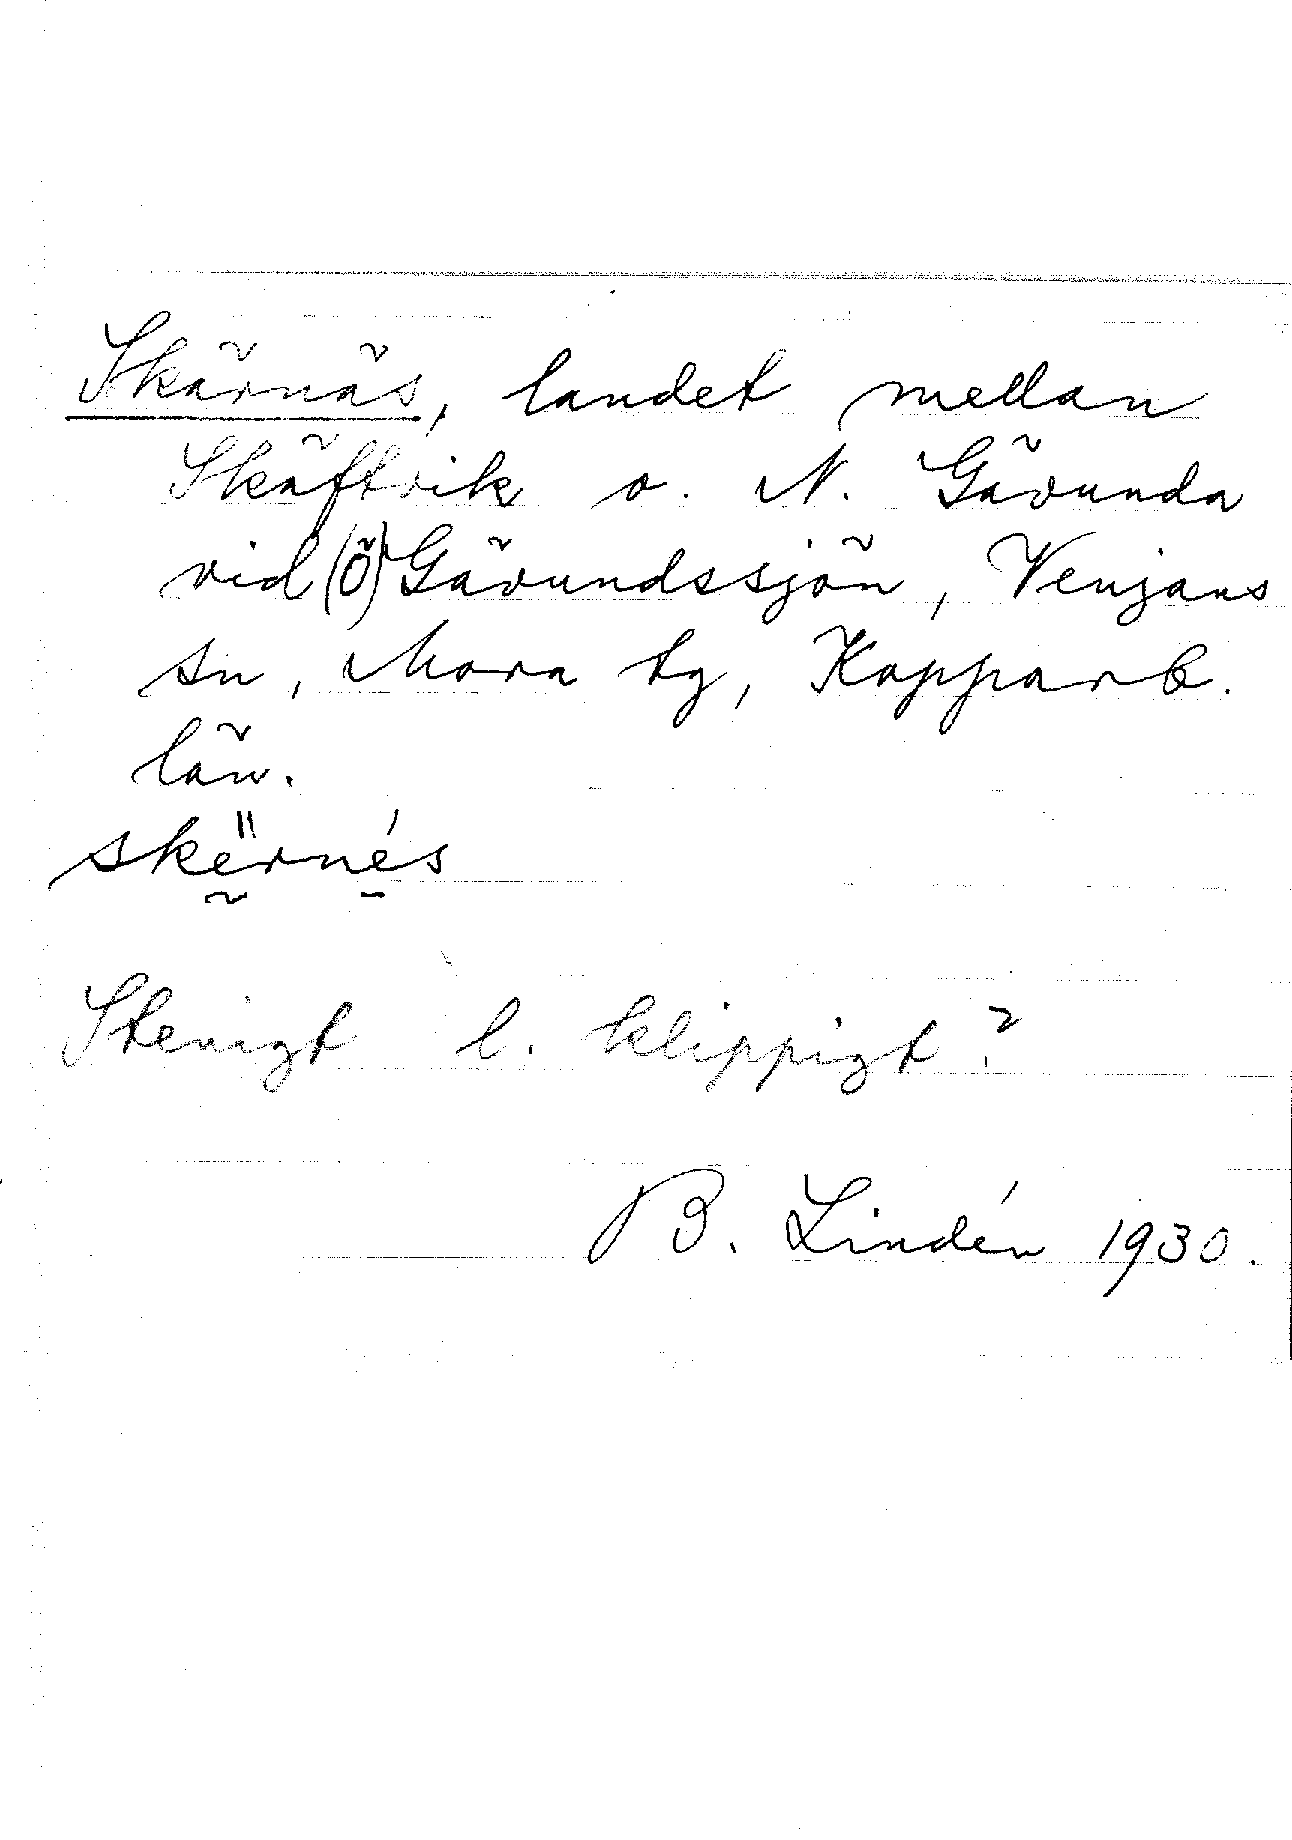 Skärnäs, landet mellan
Skäftvik o. N. Gävunda
vid (Ö) Gävundssjön, Venjans
sn, Mora tg, Kopparb.
län.
skërnés
Stenigt l. klippigt?
B. Lindén 1930.